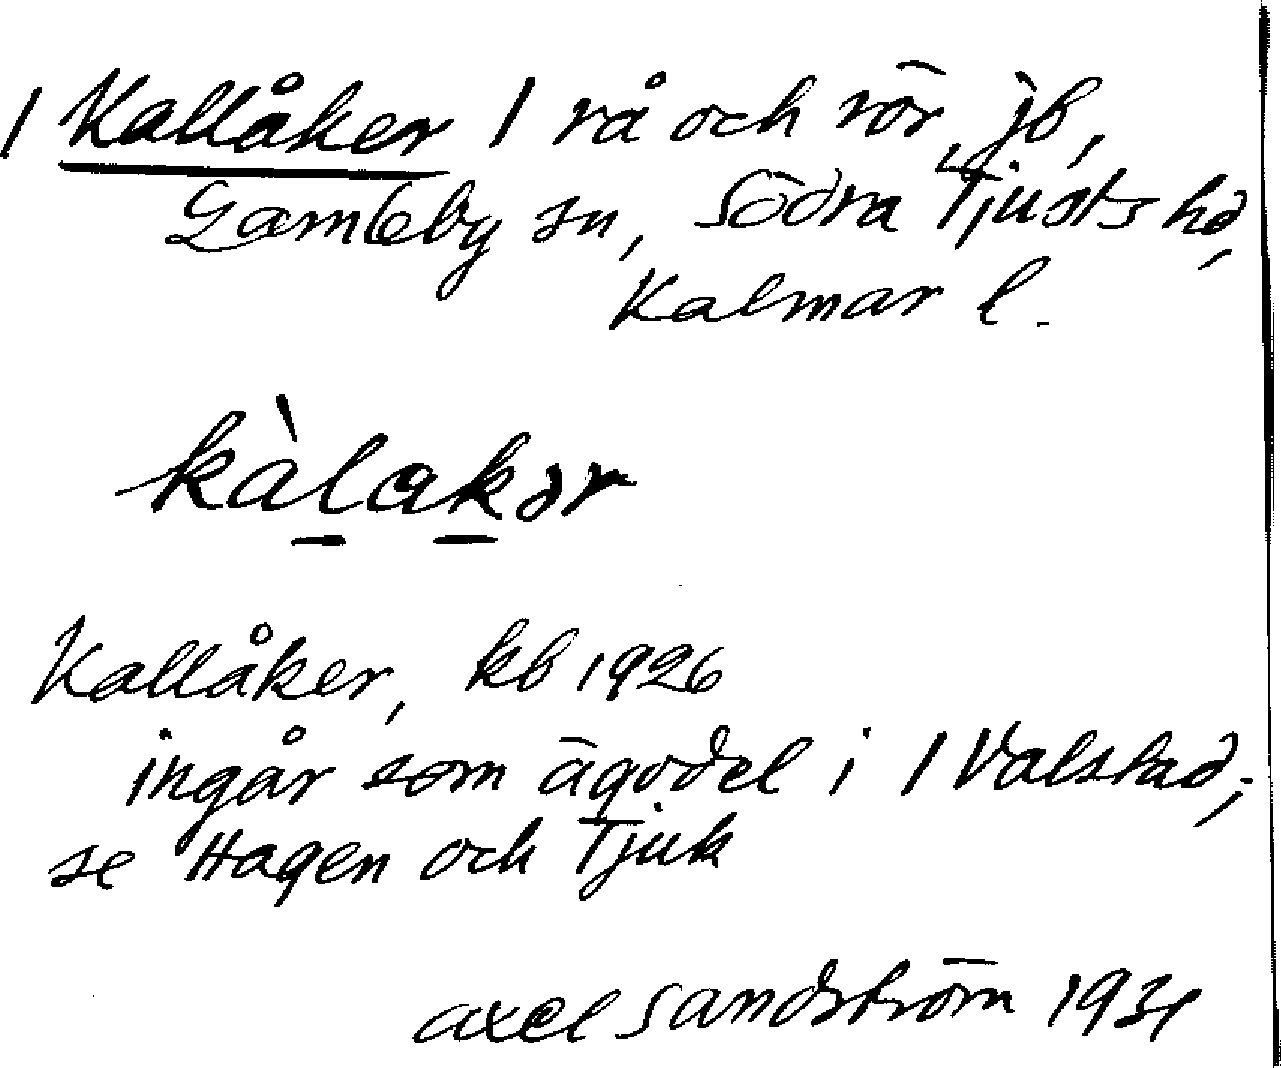 1 Kallåker 1 rå och rör, jb,
Gamleby sn, Södra Tjusts hd,
Kalmar l.
kàlakər
Kallåker, kb 1926
ingår som ägodel i 1 Valstad;
se Hagen och Tjuk
Axel Sandström 1931